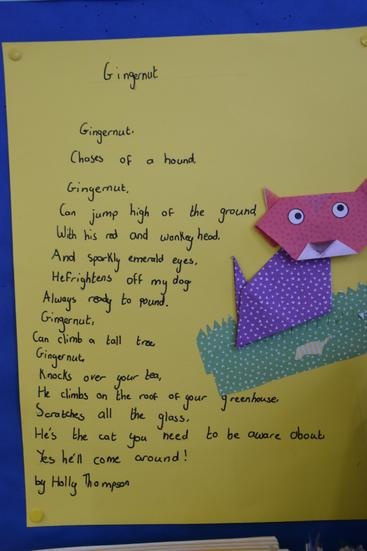 Gingernut
Gingernut.
Chases of a hound.
Gingernut,
Can jump high of the ground
With his red and wonkey head.
And sparkly emerald eyes,
He frightens off my dog
Always ready to pound.
Gingernut,
Can climb a tall tree
Gingernut
Knocks over your tea,
He climbs on the roof of your greenhouse.
Scratches all the glass.
He's the cat you need to be aware about
Yes he'll come around!
by Holly Thompson